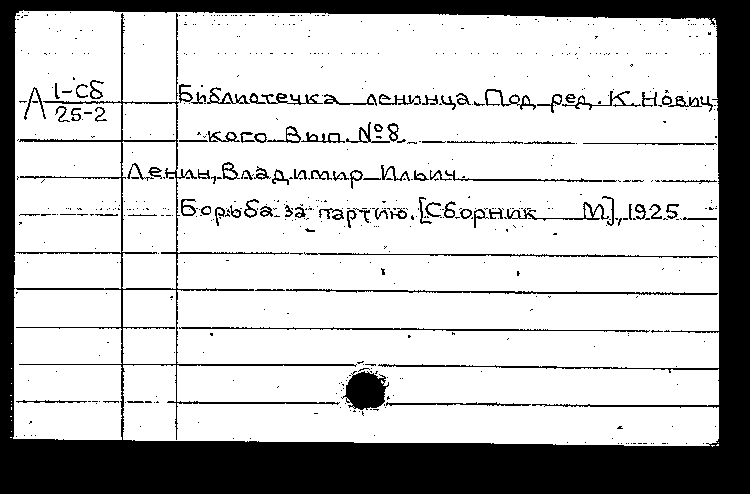 Л 1-Сб
25-2
Библиотечка ленинца. Под ред. К. Новиц
кого Вып. №8.
Ленин, Владимир Ильич.
Борьба за партию. [Сборник М], 1925.